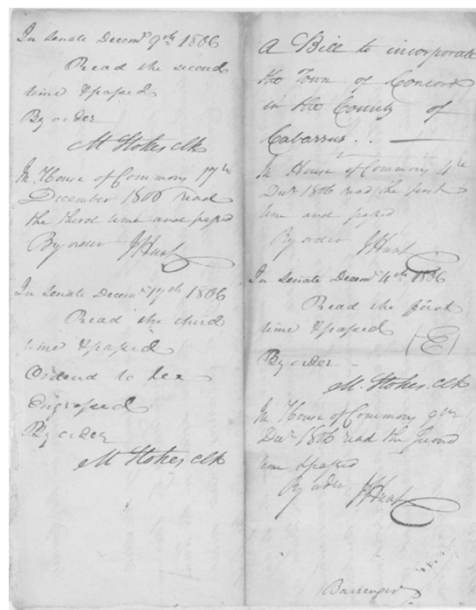 In Senate Decemr. 9th 1806
Read the second
time & passed
By order
M Stokes Clk
In House of Commons 17th
December 1806 read
the third time and passed
By order J Hunt
In Senate Decemr. 17th 1806
Read the third
time & passed
Ordered to be
Engrossed
By order
M Stokes Clk
A Bill to incorporate
the Town of Concord
in the County of
Cabarrus . . —
In House of Commons 4th
Decr. 1806 read the first
time and passed
By order J Hunt
In Senate Decemr. 4th 1806
Read the first
time & passed
(E)
By order
M Stokes Clk
In House of Commons 9th
Decr. 1806 read the second
time & passed
By order J Hunt
Barringer